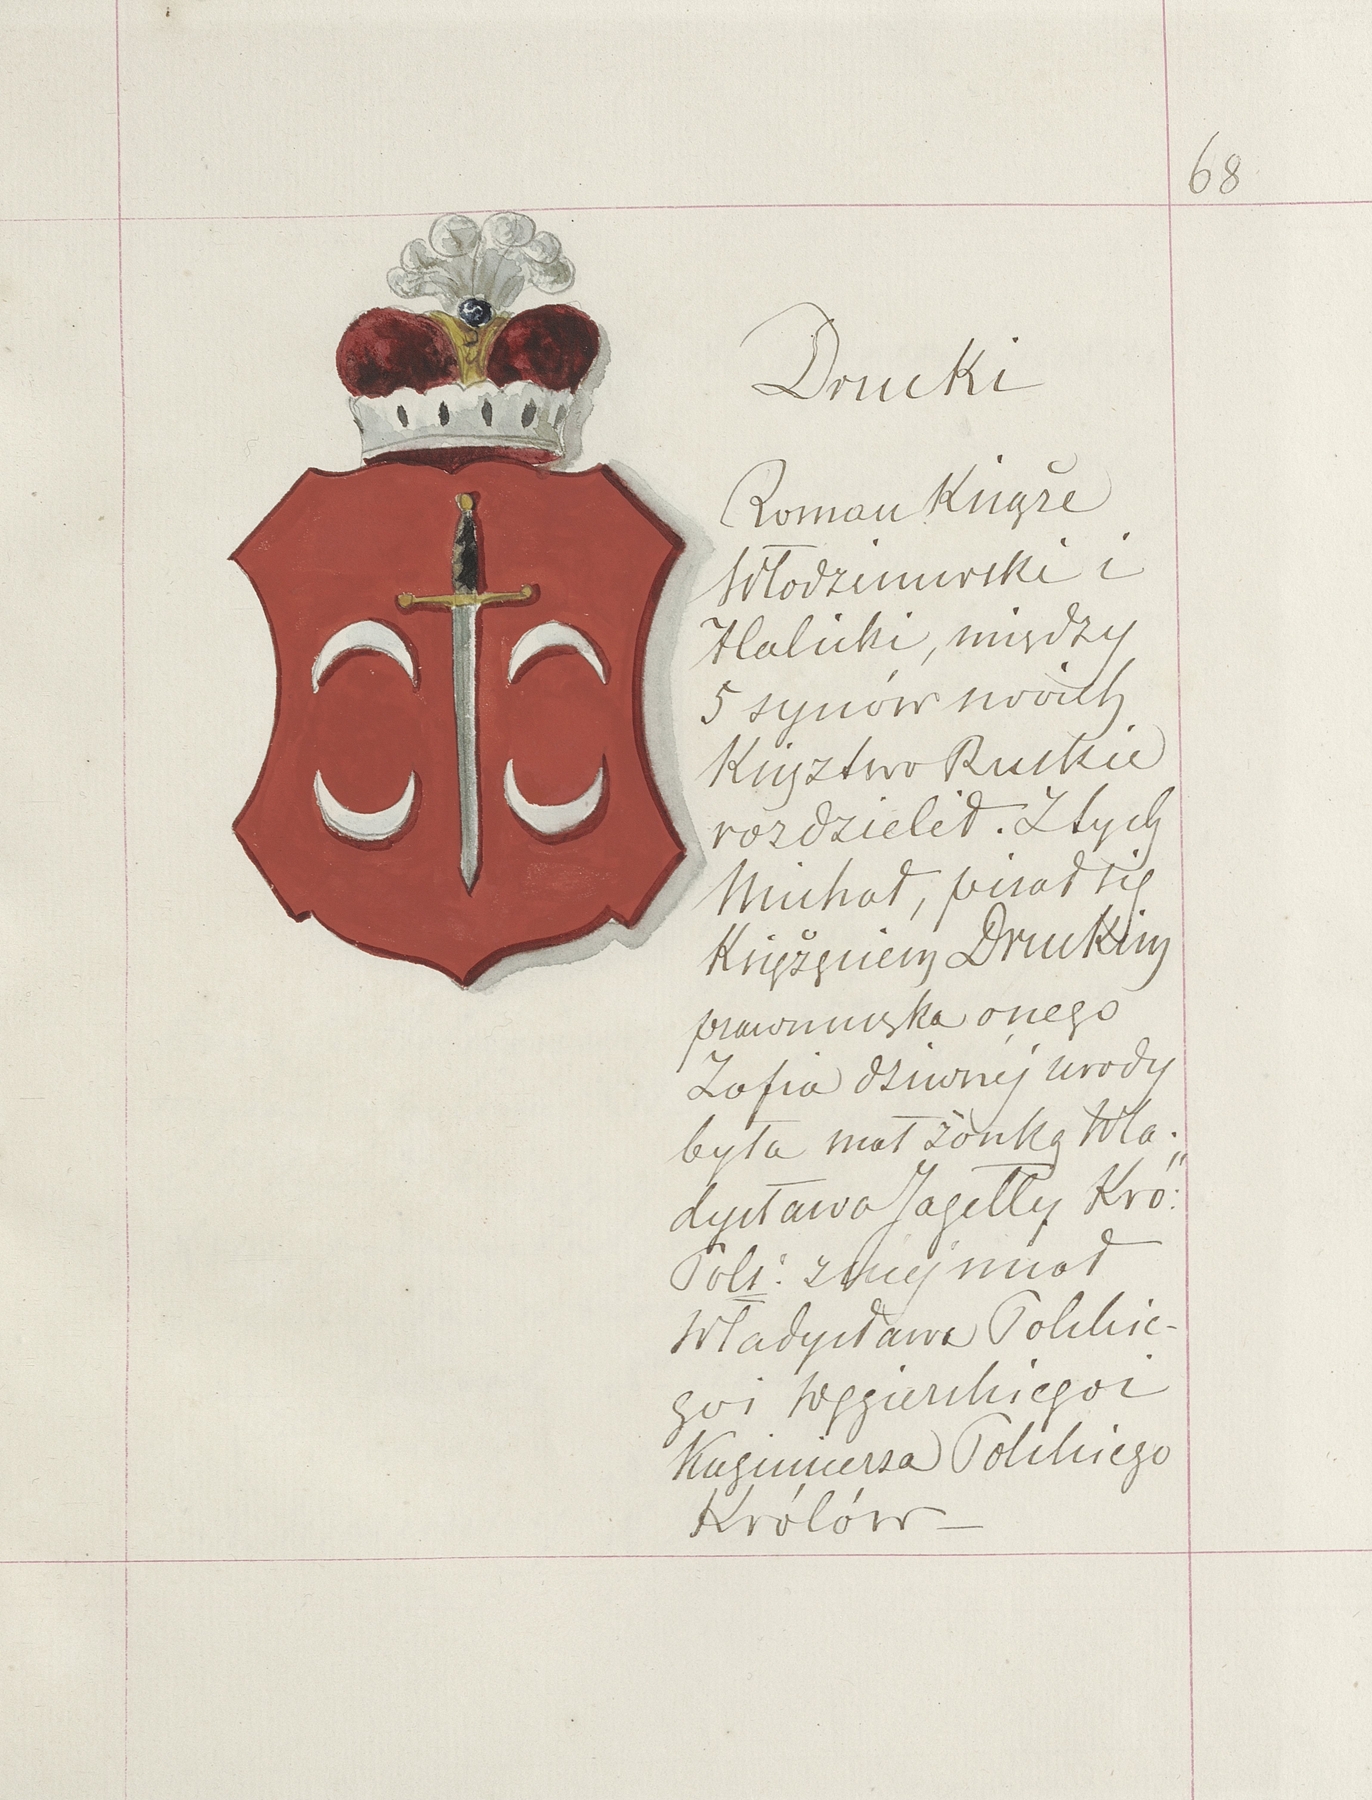 68
Drucki
Roman Książe
Włodzimirski i
Halicki, między
5 synów swoich
Księztwo Ruskie
rozdzielił. Z tych
Michał, pisał się
Książęciem Druckim
prawnuczka onego
Zofia dziwnéj urody
była małżonką Wła„
dysława Jagełły Kró:
Pols: z niej miał
Władysława Polskie-
go i Węgierskiego i
Kazimierza Polskiego
Królów —